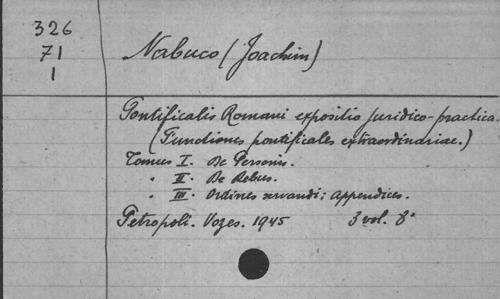 326
71
1
Nabuco (Joachim)
Pontificalis Romani expositio juridico-practica.
(Functiones pontificales extraordinariae.)
Tomus I. De Personis.
" II. De Rebus.
" III. Ordines servandi; Appendices.
Petropoli. Vozes. 1945 3 vol. 8°